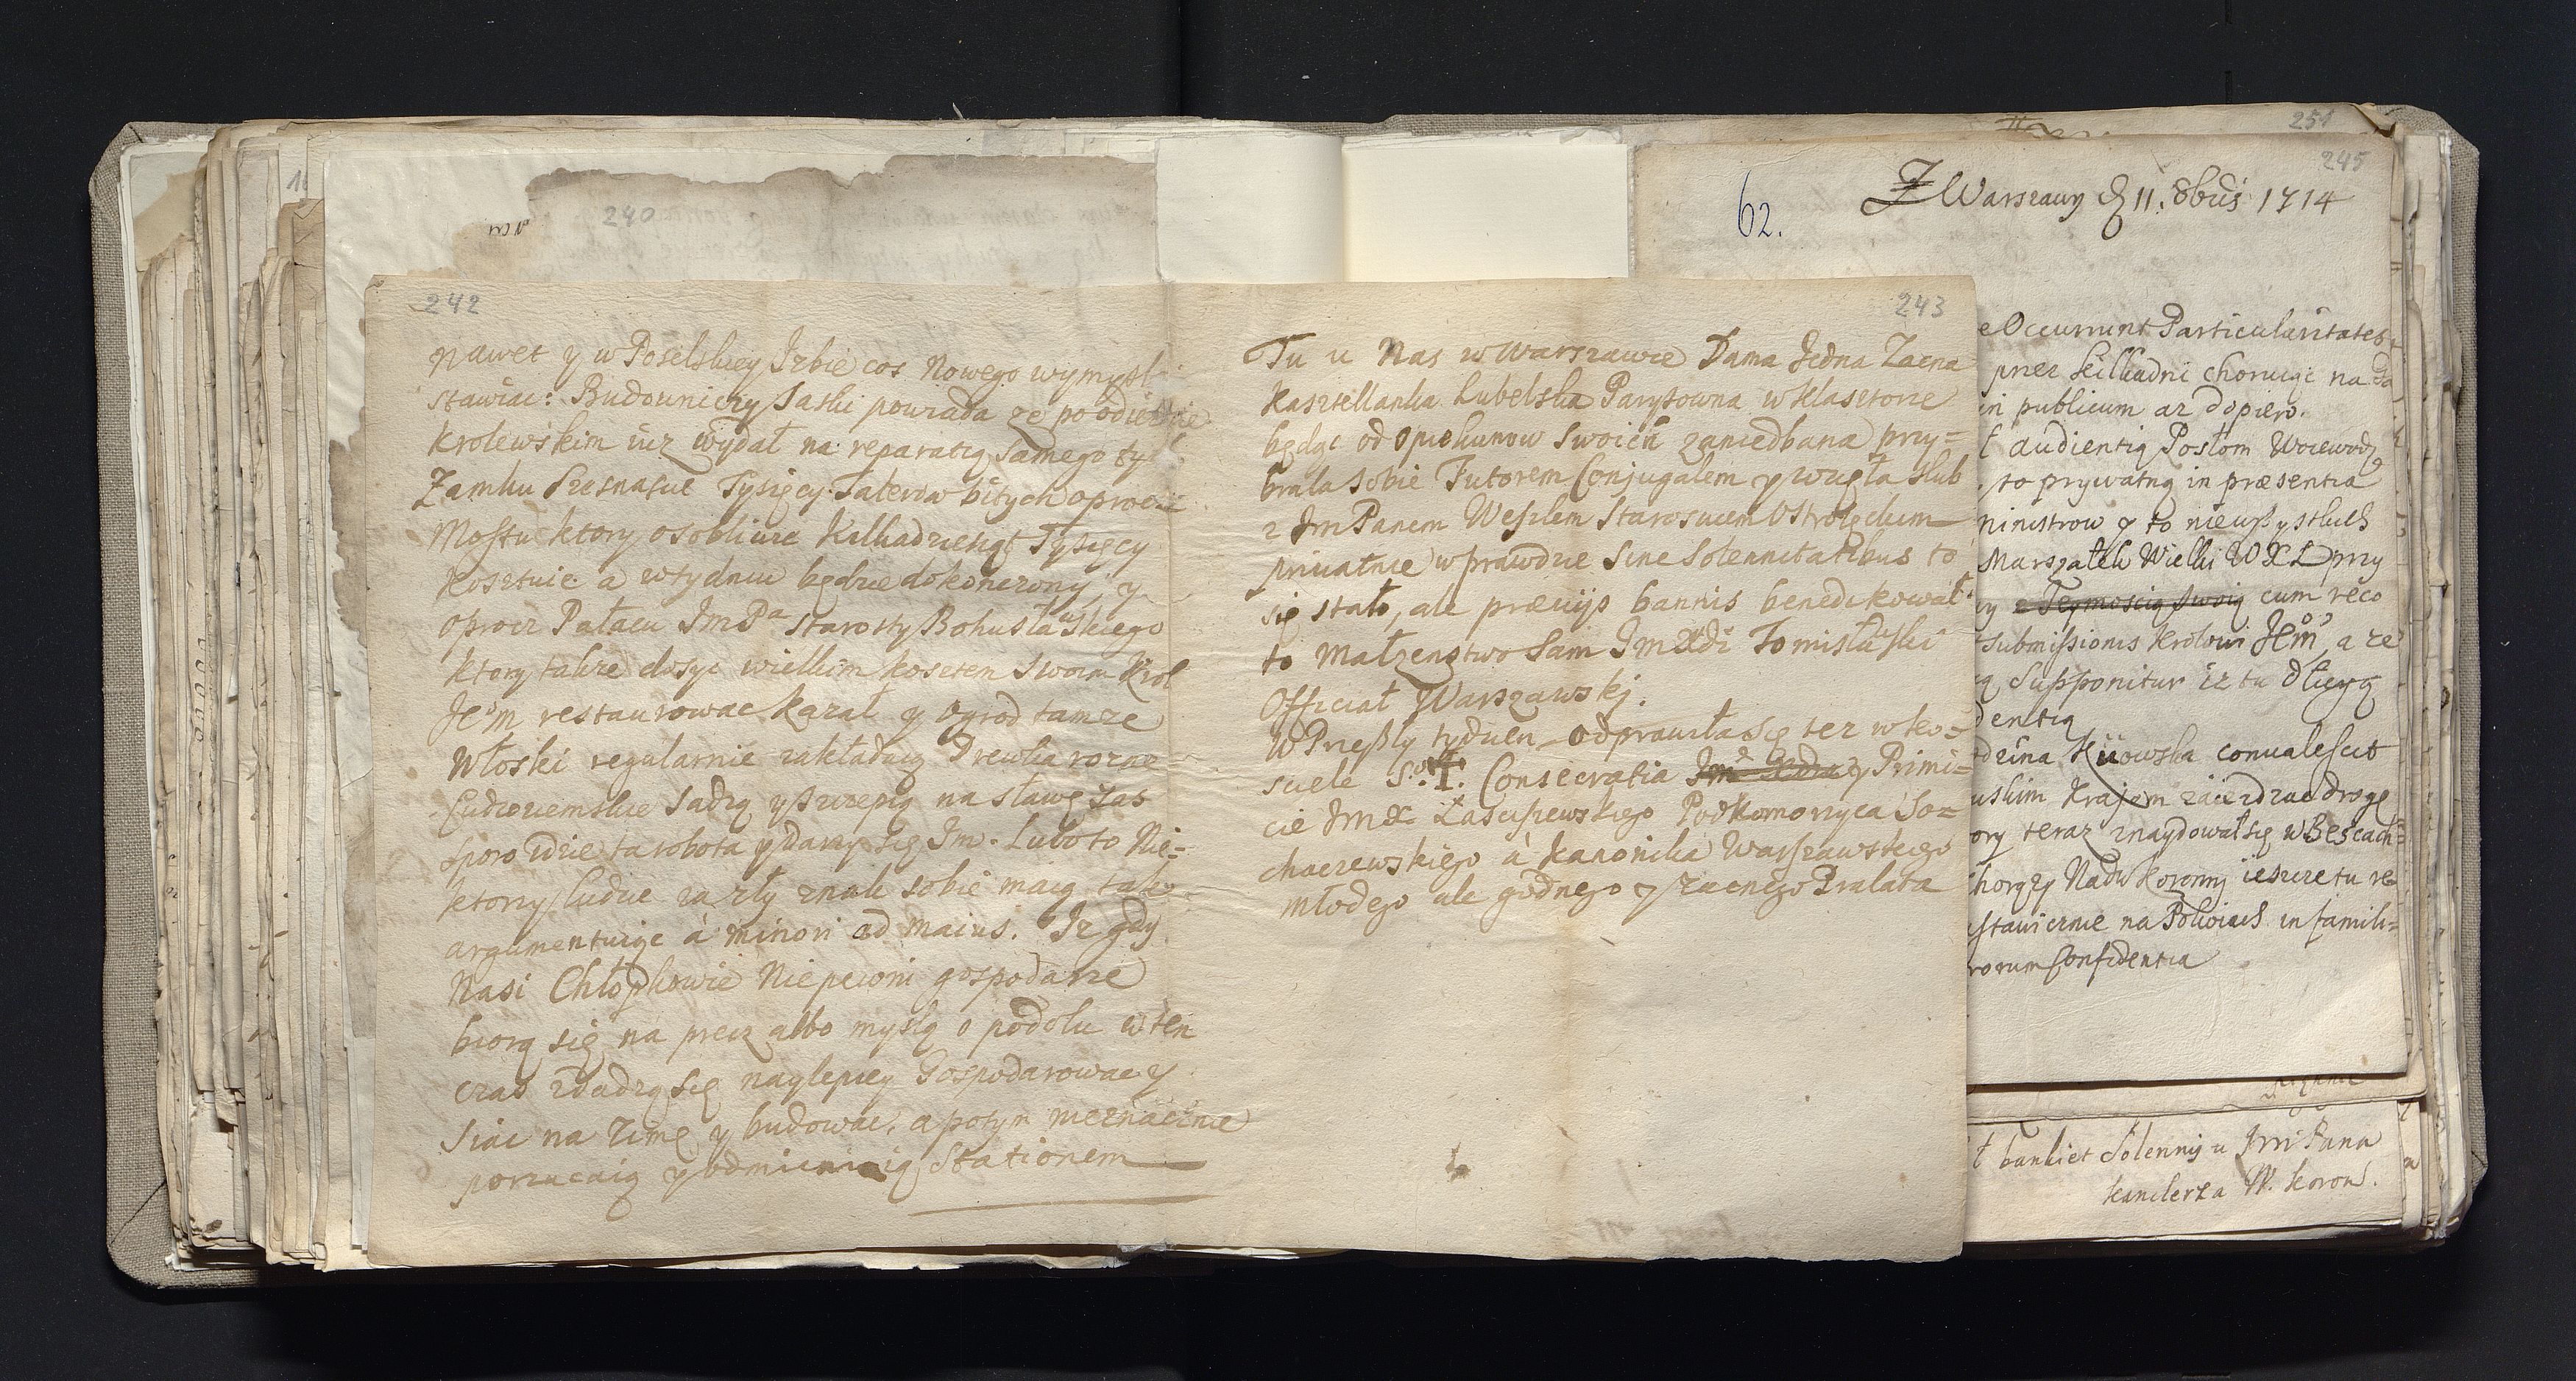 240
242
nawet y w Poselskiey Izbie cos Nowego wymysl
stawiac: Budowniczy Saski powiada ze po odieździe
Krolewskim iuz wydał na reparatią samego ty
Zamku Szesnascie Tysięcy Talerow bitych oprocz
Mostu ktory osobliwie Kilkadziesiąt Tysięcy
kosztuie a w tydniu będzie dokonczony, y
oprocz Pałacu ImPa Starosty Bohusławskiego
ktory takze dosyc wielkim kosztem swoim Krol
Jeom restaurowac kazał y ogrod tamze
Włoski regularnie zakładaią Drewka rozne
Cudzoziemskie sadzą y szczepią na sławę zas
sporo idzie ta robota y darzy się Im. Lubo to Nie=
ktorzy ludzie za zły znak sobie maią tak
argumentuiąc à minori ad maius. Iz gdy
Nasi Chłopkowie Niepewni gospodarze
biorą się na precz albo myslą o podolu w ten
czas zdadzą się naylepiey Gospodarowac y
siac na Zimę y budowac, a potym nieznacznie
porzucaią y odmieniaią Stationem
243
Tu u Nas w Warszawie Dama Jedna Zacna
Kasztellanka Lubelska Parysowna w Klasztorze
będąc od Opiekunow swoich zaniedbana przy=
brała sobie Tutorem Conjugalem y wzięła slub
z Jm Panem Wesslem Starostą Ostrołęckim
priuatnie w prawdzie sine solennitatibus to
się stało, ale præviis bannis benedikował
to małzenstwo sam Jm Xdz Tomisławski
Officiał Warszawskj.
W Przeszły tydzien odprawiła się tez w ko=
sciele S. Consecratia y Primi=
cie JmX Łasciszewskiego Podkomorzyca So=
chaczewskiego à Kanonika Warszawskiego
młodego ale godnego y zacnego Prałata
251
245
62.
Z Warszawy D 11. 8bris 1714
e Occurrunt Particularitates
przez kilkadni choruiąc na
in publicum az dopiero.
audientią Posłom Woiewodz
to prywatną in præsentia
ministrow y to niewszystkich
Marszałek Wielki WXL przy
z Jeymoscią swoią cum reco
submissionis Krolowi Jem, a ze
supponitur iz tu dłuzą
dentią
dzina Kiiowska convalescit
uskim Krajem zaiezdzac drogę
ory teraz znaydował się w Bescach
horązy Nadw Koronnj ieszcze tu re
stawicznie na Pokoiach in famili=
rorum Confidentia
t bankiet Solenny u Jm Pana
Kanclerza W. Koron.